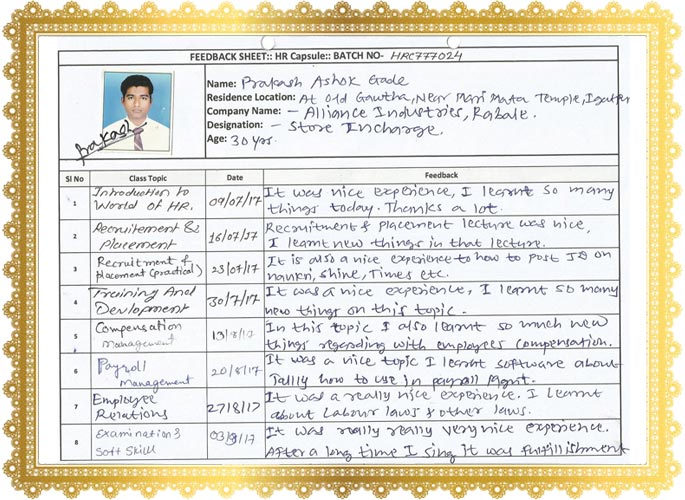 FEEDBACK SHEET:: HR Capsule:: BATCH NO- HRC777024
Prakash
Name: Prakash Ashok Gade
Residence Location: At Old Gawtha, Near Mari Mata Temple, Igatpuri
Company Name: - Alliance Industries, Rabale.
Designation: - Store Incharge.
Age: 30 yrs.
Sl No Class Topic Date Feedback
1 Introduction to World of HR. 09/07/17 It was nice experience, I learnt so many
things today. Thanks a lot.
2 Recruitement & Placement 16/07/17 Recruitment & placement lecture was nice,
I learnt new things in that lecture.
3 Recruitment & placement (practical) 23/07/17 It is also a nice experience to how to post JD on
naukri, shine, Times etc.
4 Training And Devlopment 30/7/17 It was a nice experience, I learnt so many
new things on this topic.
5 Compensation management 13/8/17 In this topic I also learnt so much new
things regarding with employees compensation.
6 Payroll management 20/8/17 It was a nice topic I learnt software about
Tally how to use in payroll Mgmt.
7 Employee Relations 27/8/17 It was a really nice experience. I learnt
about Labour laws & other laws.
8 Examination & Soft Skill 03/9/17 It was really really very nice experience.
After a long time I sing it was fulfillishment